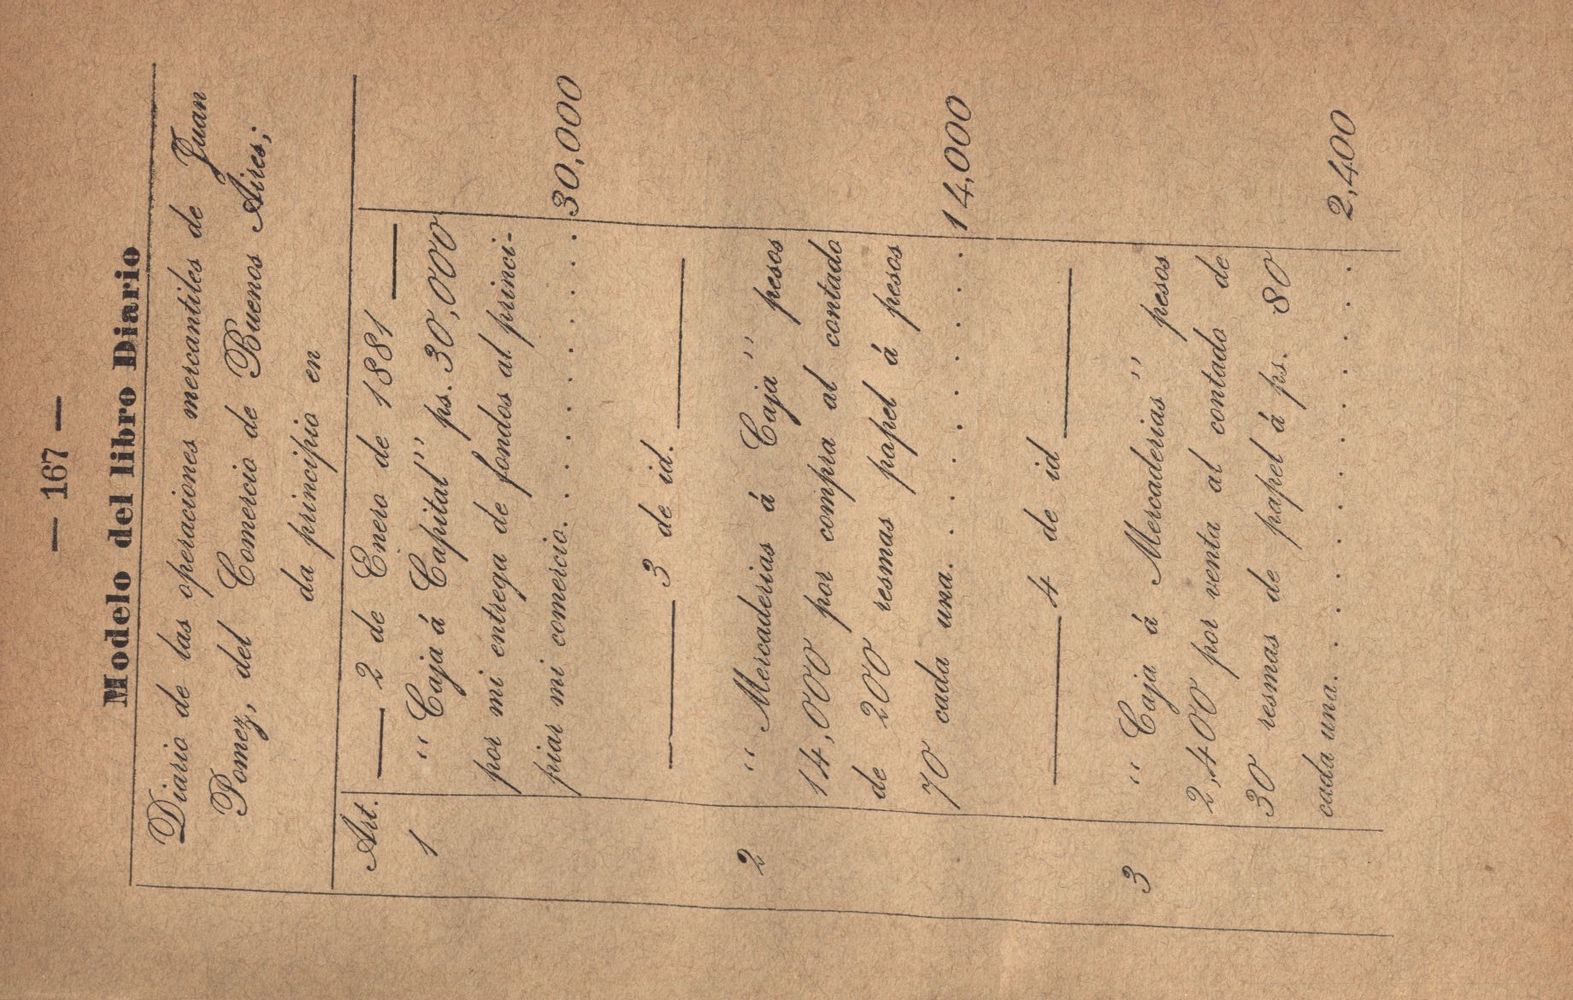 — 167 —
Modelo del libro Diario
Diario de las operaciones mercantiles de Juan
Pomez, del Comercio de Buenos Aires;
da principio en
Art. — 2 de Enero de 1881 —
1 “ Caja á Capital” ps. 30,000
por mi entrega de fondos al princi-
piar mi comercio. . . . . . . . 30,000
— 3 de id. —
2 “ Mercaderias á Caja ” pesos
14,000 por compra al contado
de 200 resmas papel á pesos
70 cada una. . . . . . . . . 14,000
— 4 de id —
3 “ Caja á Mercaderias ” pesos
2,400 por venta al contado de
30 resmas de papel á ps. 80
cada una. . . . . . . . . . . . 2,400